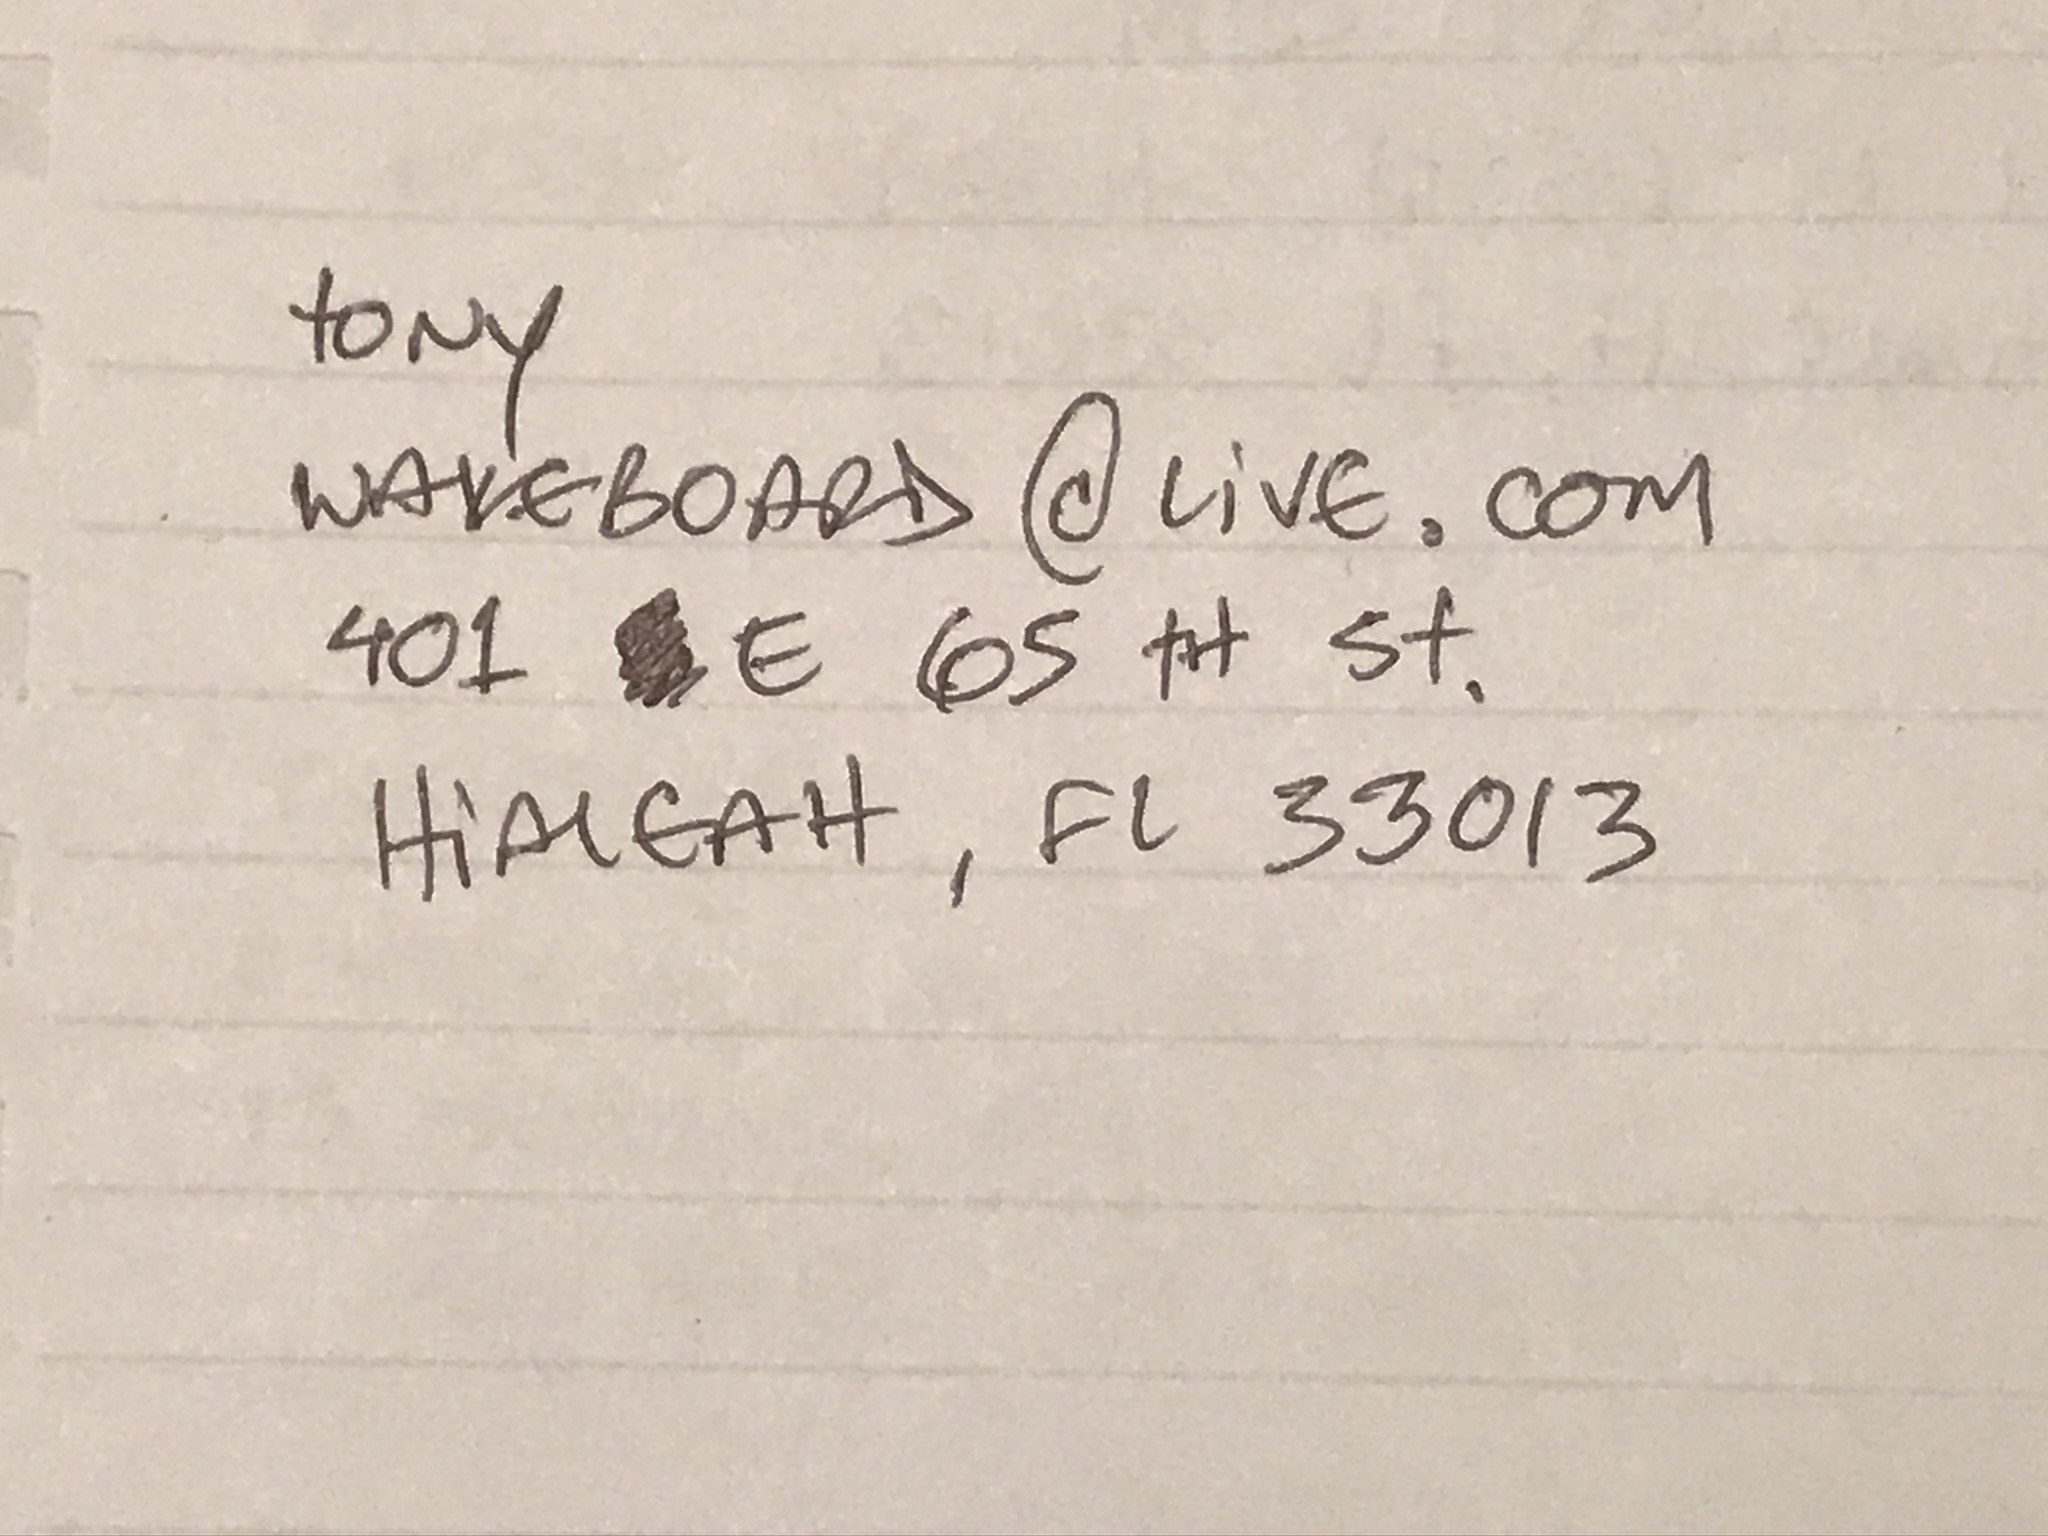 tony
WAKEBOARD@LiVE.COM
401 E 65 tH St.
HiALEAH, FL 33013